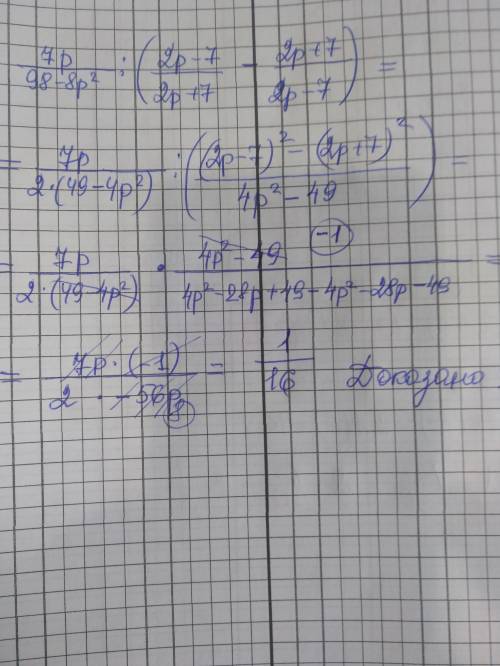 7p/(98-8p²) : ((2p-7)/(2p+7) - (2p+7)/(2p-7)) =
= 7p/(2·(49-4p²)) : (((2p-7)² - (2p+7)²)/(4p²-49)) =
= 7p/(2·(49-4p²)) · (4p²-49)/(4p²-28p+49-4p²-28p-49) = (-1)
= 7p·(-1)/(2·-56p) = 1/16 Доказано
8